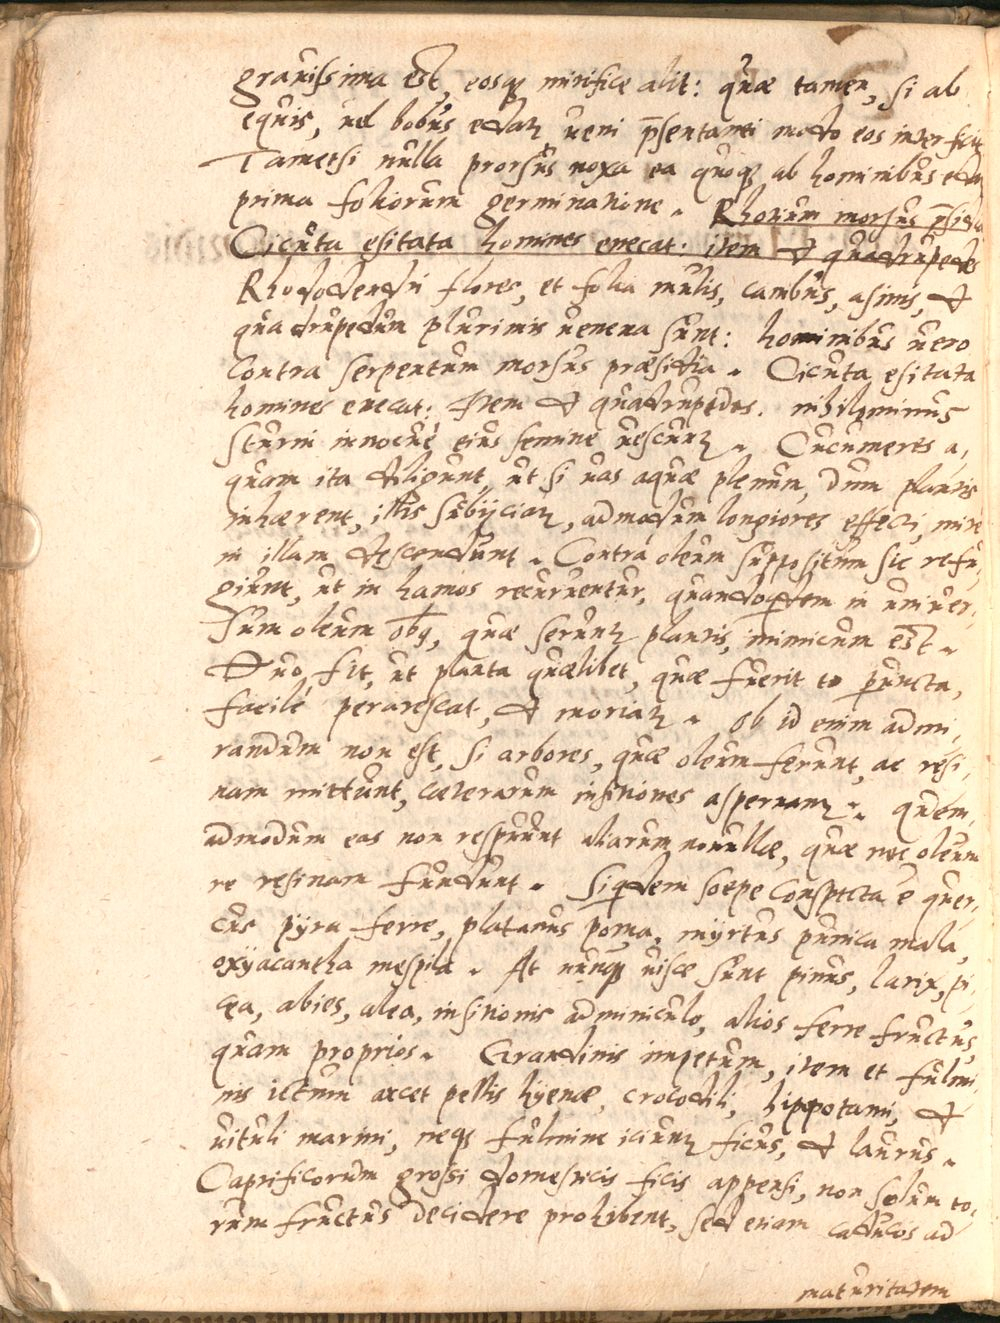 grauissima est, eosq mirificè alit: quæ tamen, si ab
equis, uel bobus edat ueni p̄sentanei modo eos interficit
Tametsi nulla prorsus noxa ea quoq ab hominibus edat
prima foliorum germinatione.
Cicuta esitata homines enecat: item & quadrupedes
Rhododendri flores, et folia mulis, canibus, asinis, &
quadrupedum plurimis uenena sunt: hominibus uero
contra serpentum morsus præsidia. Cicuta esitata
homines enecat; Item & quadrupedes. nihilominus
sturni innocuè eius semine uescunt. Cucumeres a,
quam ita diligunt, ut si uas aquæ plenum, dum plantis
inhærent, illis subijciat, admodum longiores effecti, mire
in illam descendunt. Contra oleum suppositum sic refu,
giunt, ut in hamos recuruentur, quandoqdem in uniuer,
sum oleum oībq, quæ serunt plantis, inimicum est.
Quo, fit, ut planta quælibet, quæ fuerit eo peruncta,
facilè perarescat, & moriat. Ob id enim admi,
randum non est, si arbores, quæ oleum ferunt, ac resi,
nam mittunt, cæterarum insitiones aspernant. quem,
admodum eas non respuunt aliarum nonnullæ, quæ nec oleum
ne resinam fundunt. Siqdem soepe conspecta ē quer,
cus pyra ferre, platanus poma, myrtus punica mala,
oxyacantha mespila. At nunq uisæ sunt pinus, larix, pi,
cea, abies, alea, insitionis adminiculo, alios ferre fructus,
quam proprios. Grandinis impetum, item et fulmi
nis ictum arcet pellis hyenæ, crocodili, hippotami, &
uituli marini, neq fulmine iciunt ficus, & laurus.
Caprificorum grossi domesticis ficis appensi, non solum eo,
rum fructus decidere prohibent, sed etiam caducos ad
maturitatem